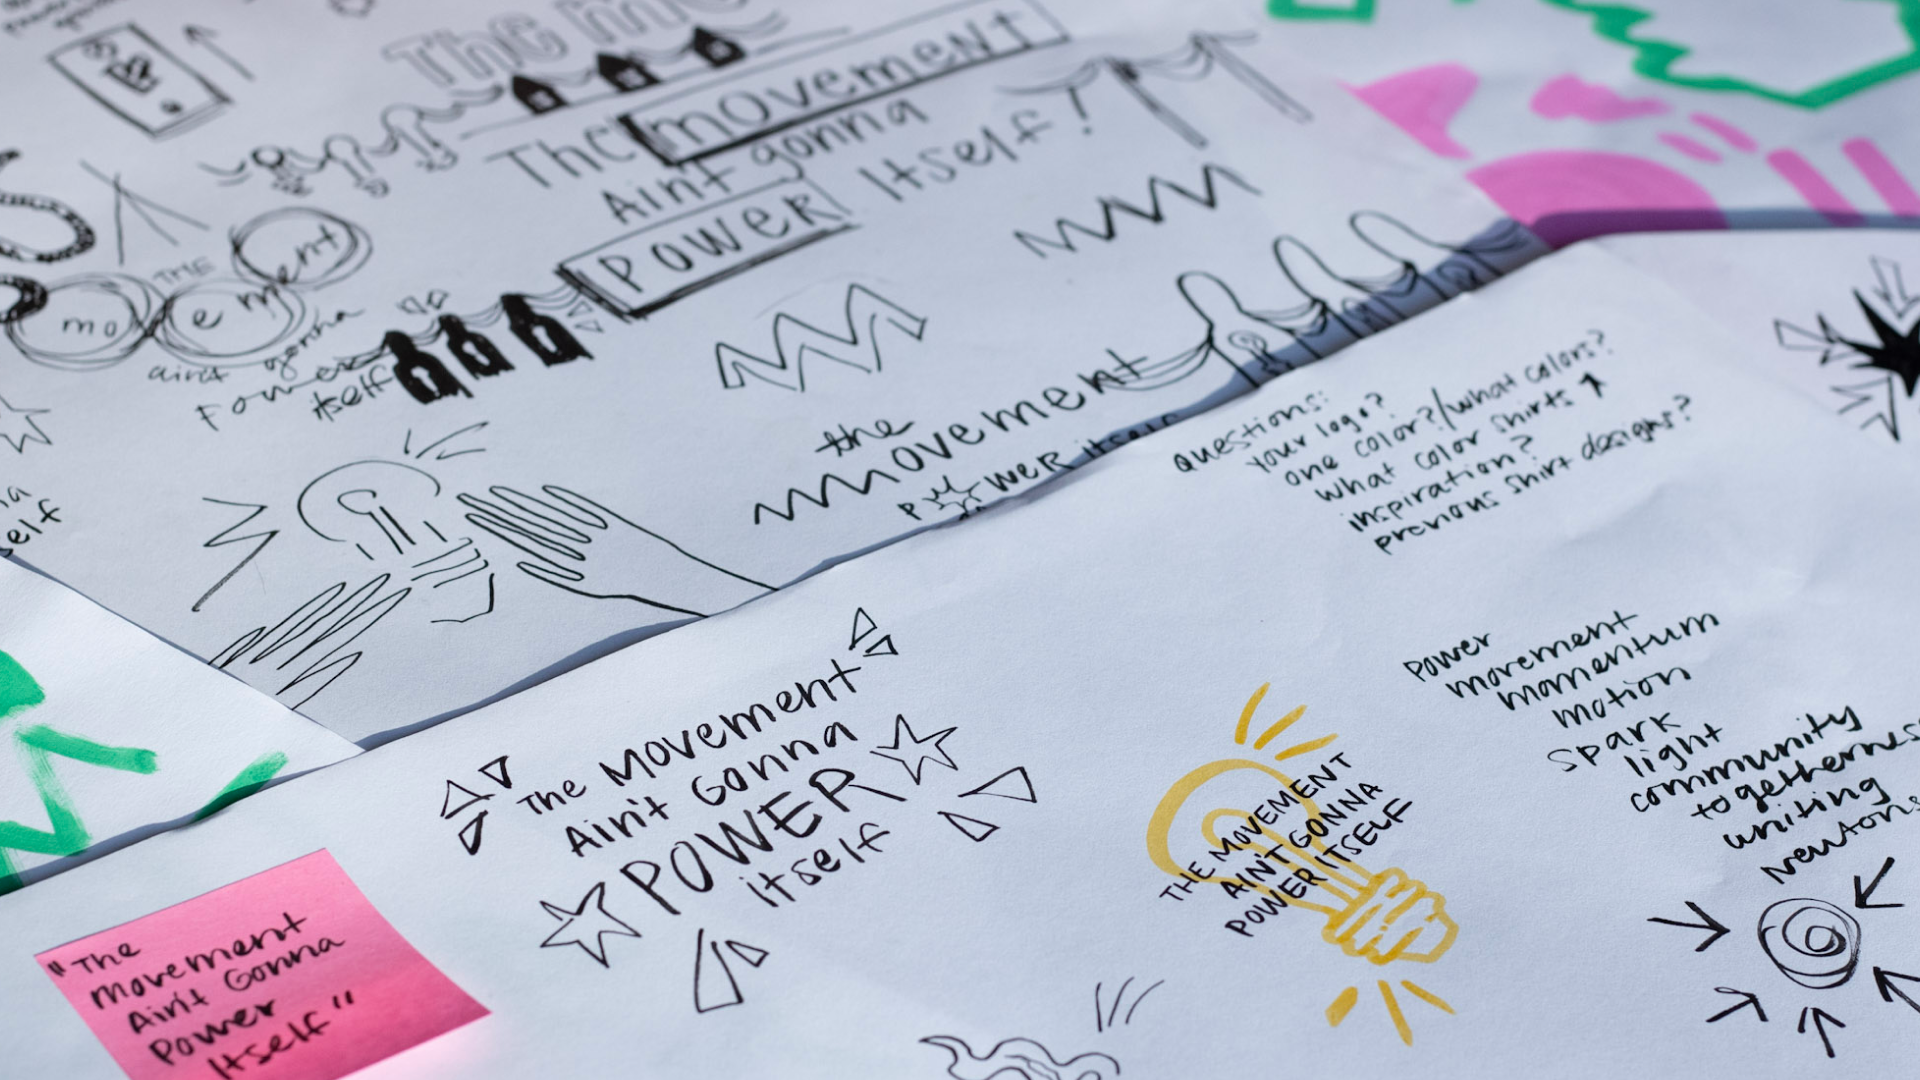 The mo
The movement
Ain't gonna
Power Itself!
THE
movement
ain't gonna
Power
itself
self
the
movement
POWER itself
Questions:
Your logo?
one color?/what colors?
what color shirts ↑
inspiration?
previous shirt designs?
Power
movement
momentum
motion
spark
light
community
togetherness
uniting
newtons
The Movement
Ain't Gonna
POWER
itself
THE MOVEMENT
AIN'T GONNA
POWER ITSELF
"The
Movement
Ain't Gonna
Power
Itself"